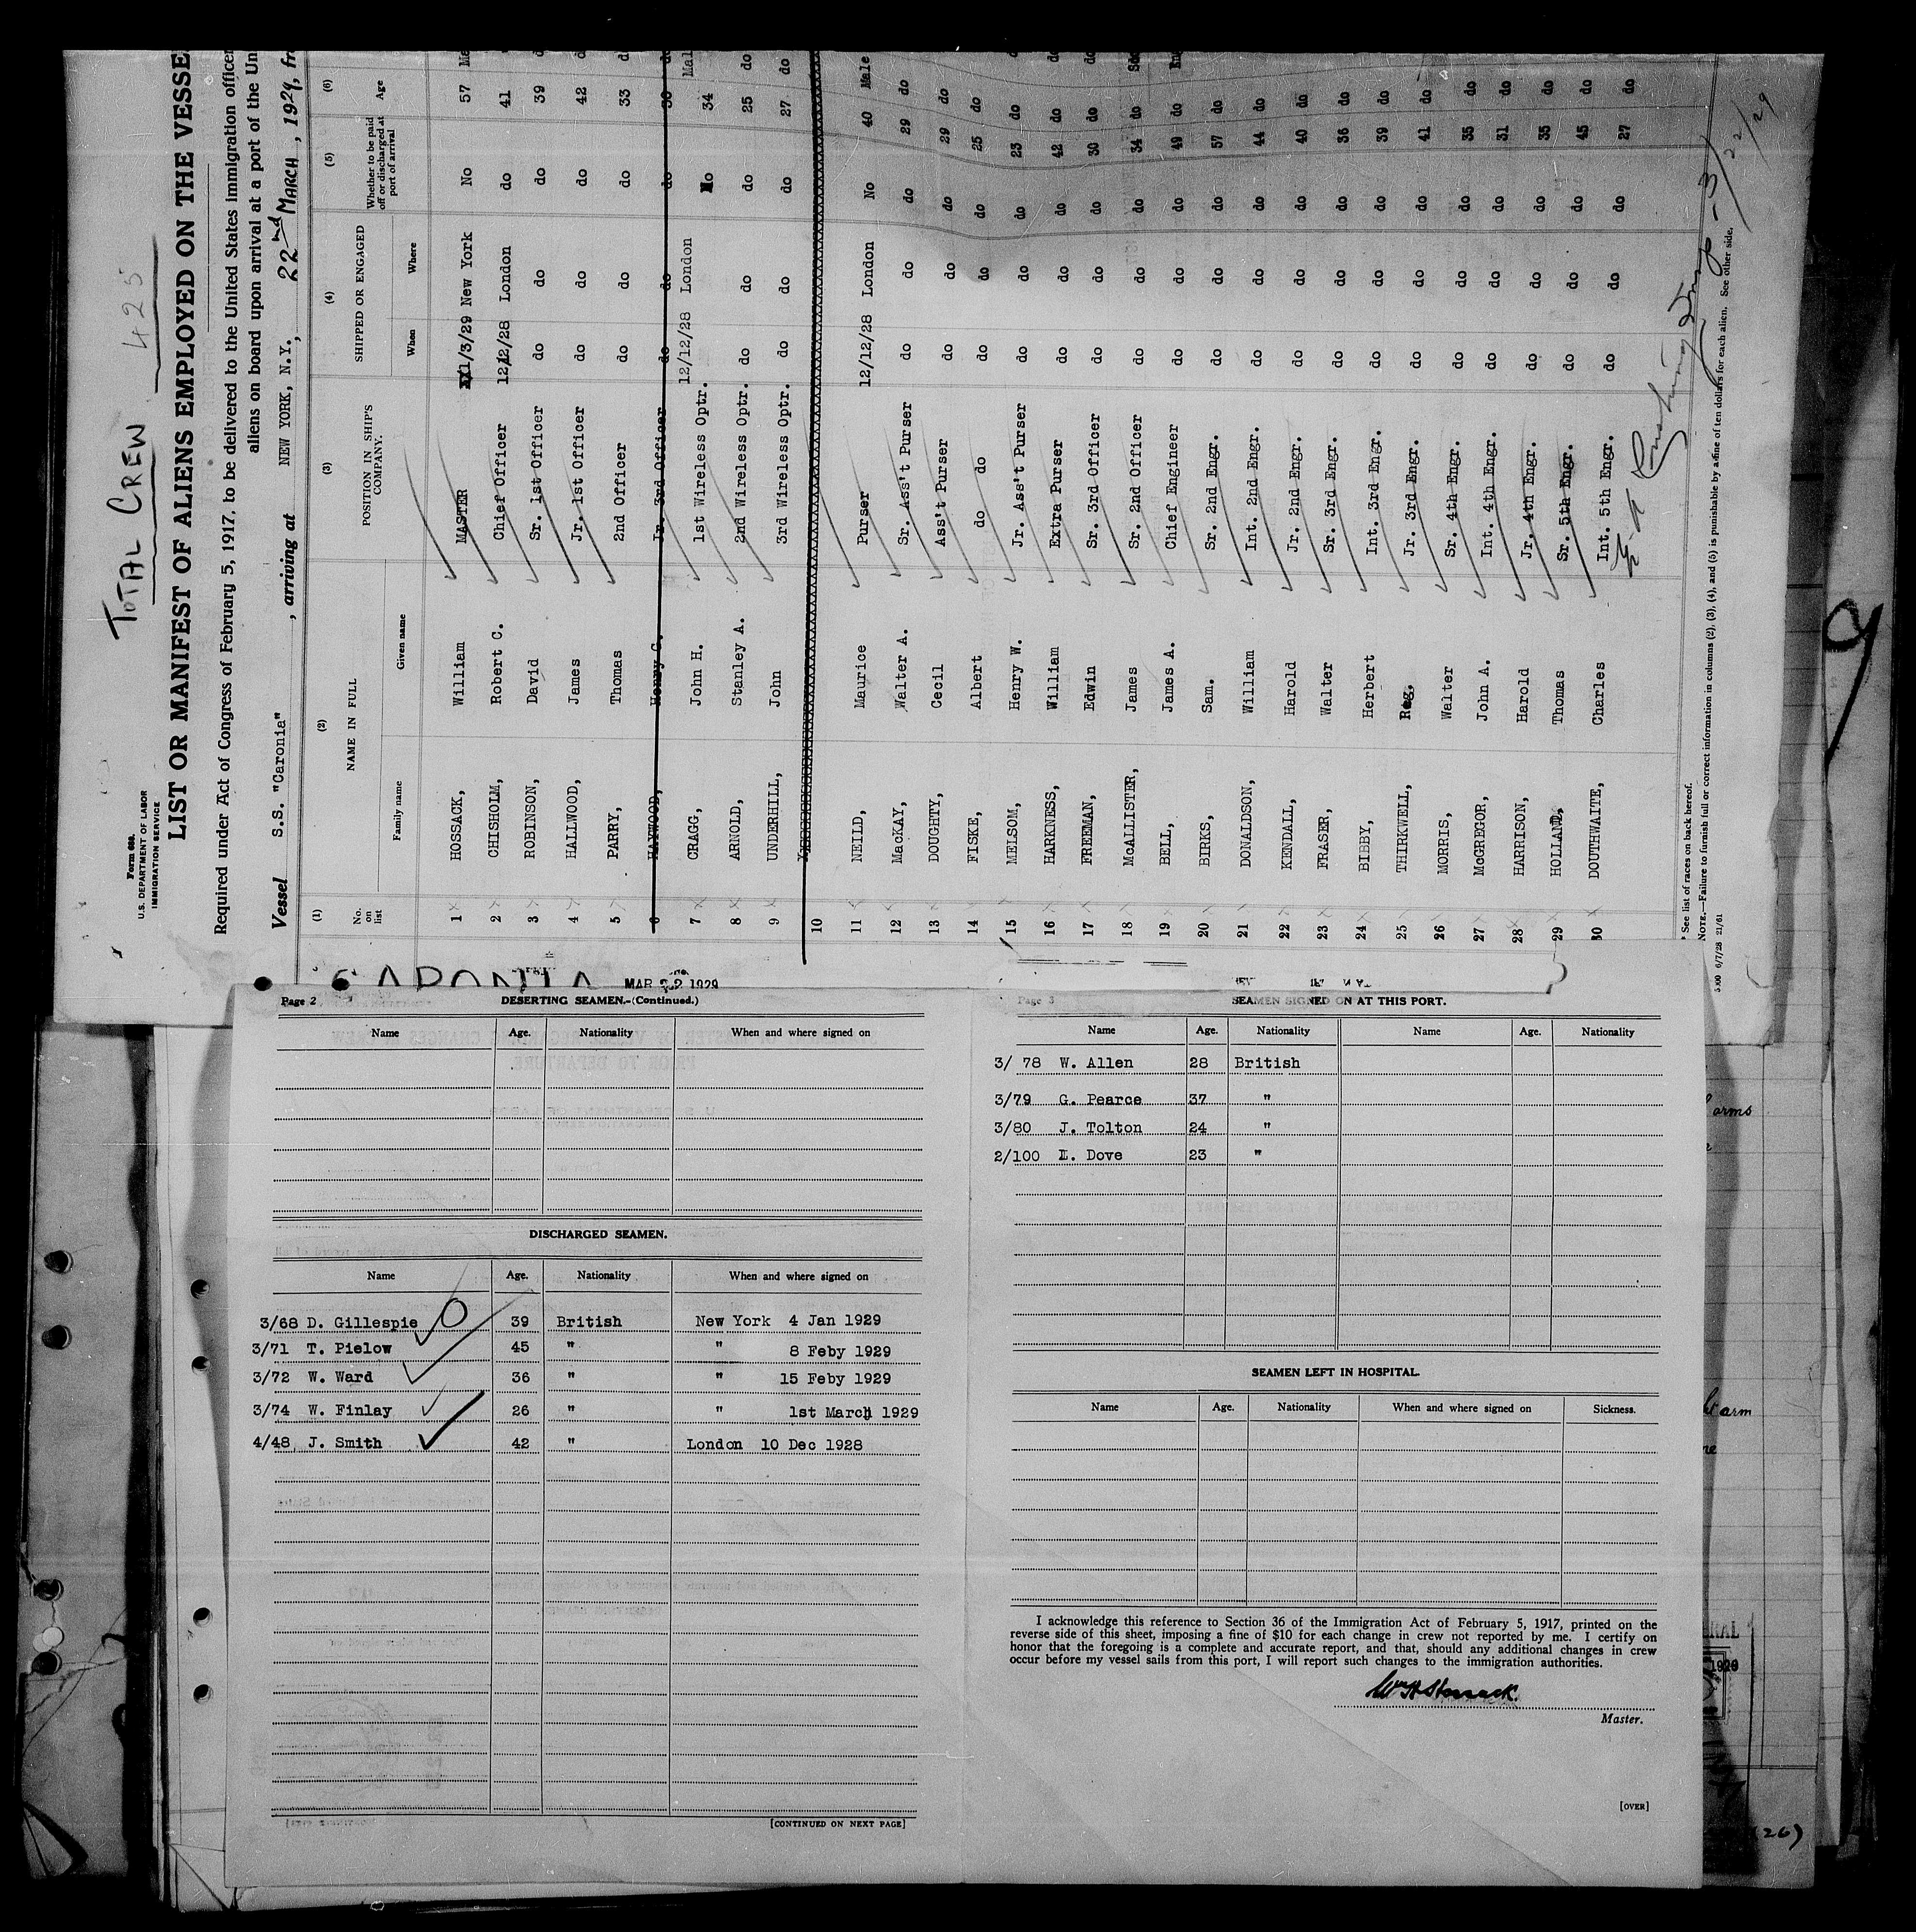 TOTAL CREW 425
Form 689.
U.S. DEPARTMENT OF LABOR
IMMIGRATION SERVICE
LIST OR MANIFEST OF ALIENS EMPLOYED ON THE VESSE
Required under Act of Congress of February 5, 1917, to be delivered to the United States immigration officer
aliens on board upon arrival at a port of the Un
Vessel S.S. "Caronia" , arriving at NEW YORK, N.Y., 22nd MARCH , 1929, fr
(1) (2) (3) (4) (5) (6)
No. on list NAME IN FULL POSITION IN SHIP'S COMPANY. SHIPPED OR ENGAGED Whether to be paid off or discharged at port of arrival Age
Family name Given name When Where
1 HOSSACK, William MASTER 1/3/29 New York No 57 Ma
2 CHISHOLM, Robert C. Chief Officer 12/12/28 London do 41 d
3 ROBINSON, David Sr. 1st Officer do do do 39 d
4 HALLWOOD, James Jr. 1st Officer do do do 42 d
5 PARRY, Thomas 2nd Officer do do do 33 d
6 HAYWOOD, Henry C. Jr. 3rd Officer do do do 30 do
7 CRAGG, John H. 1st Wireless Optr. 12/12/28 London No 34 Mal
8 ARNOLD, Stanley A. 2nd Wireless Optr. do do do 25 do
9 UNDERHILL, John 3rd Wireless Optr. do do do 27 do
10
11 NEILD, Maurice Purser 12/12/28 London No 40 Male
12 MacKAY, Walter A. Sr. Ass't Purser do do do 29 do
13 DOUGHTY, Cecil Ass't Purser do do do 29 do
14 FISKE, Albert do do do do do 25 do
15 MELSOM, Henry W. Jr. Ass't Purser do do do 23 do
16 HARKNESS, William Extra Purser do do do 42 do
17 FREEMAN, Edwin Sr. 3rd Officer do do do 30 do
18 McALLISTER, James Sr. 2nd Officer do do do 34 do
19 BELL, James A. Chief Engineer do do do 49 do
20 BIRKS, Sam. Sr. 2nd Engr. do do do 57 do
21 DONALDSON, William Int. 2nd Engr. do do do 44 do
22 KENDALL, Harold Jr. 2nd Engr. do do do 40 do
23 FRASER, Walter Sr. 3rd Engr. do do do 36 do
24 BIBBY, Herbert Int. 3rd Engr. do do do 39 do
25 THIRKWELL, Reg. Jr. 3rd Engr. do do do 41 do
26 MORRIS, Walter Sr. 4th Engr. do do do 35 do
27 McGREGOR, John A. Int. 4th Engr. do do do 31 do
28 HARRISON, Harold Jr. 4th Engr. do do do 35 do
29 HOLLAND, Thomas Sr. 5th Engr. do do do 45 do
30 DOUTHWAITE, Charles Int. 5th Engr. do do do 27 do
3/22/29
* See list of races on back hereof.
NOTE.—Failure to furnish full or correct information in columns (2), (3), (4), and (5) is punishable by a fine of ten dollars for each alien. See other side.
6/7/28 21/61
CARONIA MAR 22 1929
Page 2 DESERTING SEAMEN.-(Continued.)
Name Age. Nationality When and where signed on
DISCHARGED SEAMEN.
Name Age. Nationality When and where signed on
3/68 D. Gillespie 39 British New York 4 Jan 1929
3/71 T. Pielow 45 " " 8 Feby 1929
3/72 W. Ward 36 " " 15 Feby 1929
3/74 W. Finlay 26 " " 1st March 1929
4/48 J. Smith 42 " London 10 Dec 1928
[CONTINUED ON NEXT PAGE]
Page 3 SEAMEN SIGNED ON AT THIS PORT.
Name Age. Nationality Name Age. Nationality
3/ 78 W. Allen 28 British
3/79 G. Pearce 37 "
3/80 J. Tolton 24 "
2/100 L. Dove 23 "
SEAMEN LEFT IN HOSPITAL.
Name Age. Nationality When and where signed on Sickness.
I acknowledge this reference to Section 36 of the Immigration Act of February 5, 1917, printed on the
reverse side of this sheet, imposing a fine of $10 for each change in crew not reported by me. I certify on
honor that the foregoing is a complete and accurate report, and that, should any additional changes in crew
occur before my vessel sails from this port, I will report such changes to the immigration authorities.
Wm Hossack.
Master.
[OVER]
arms
arm
(26)